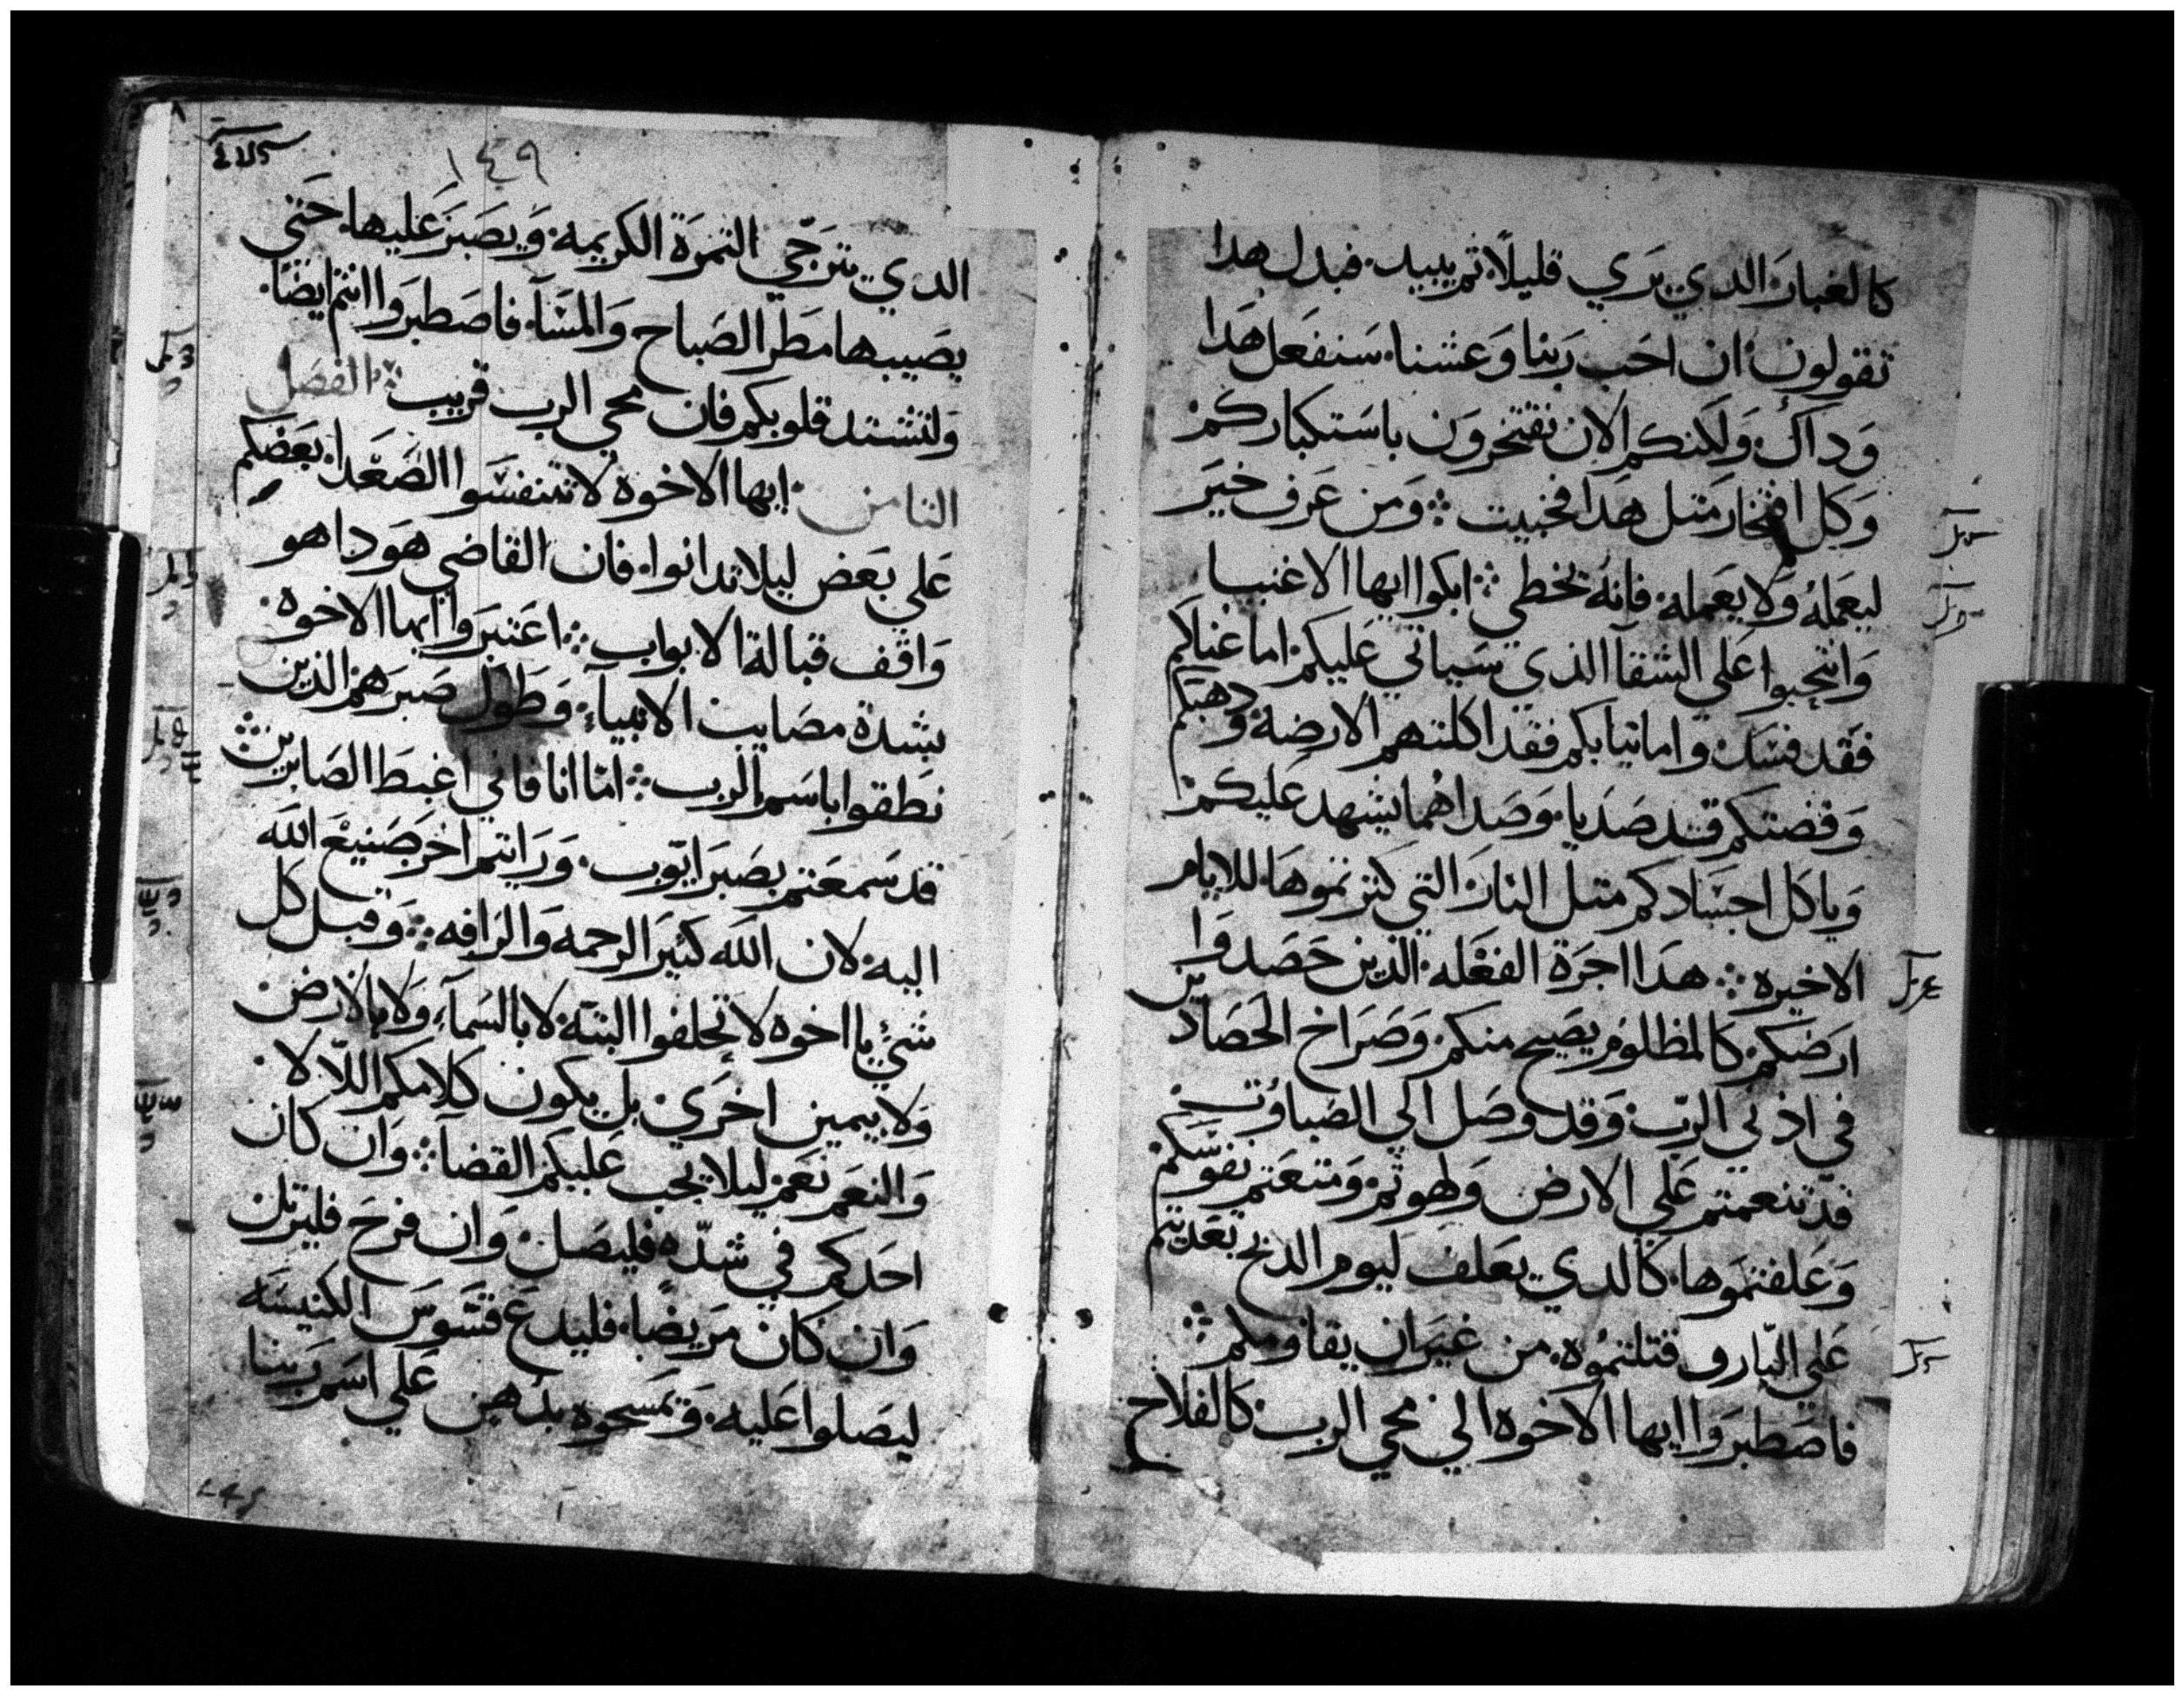 كالغبار الدي يري قليلًا تم يبيد. فبدل هدا
تقولون ان احب ربنا وعشنا. سنفعل هدا
وداك. ولكنكم الان تفتخرون باستكباركم
وكل افتخار متل هدا فخبيت ܀ ومن عرف خير
ليعمله ولا يعمله. فانه يخطي ܀ ابكوا ايها الاغنيا
وانتحبوا علي الشقا الذي سياتي عليكم. اما غناكم
فقد فسد. واما تيابكم فقد اكلتهم الارضة ودهبكم
وفضتكم قد صديا. وصداهما يشهد عليكم
وياكل اجسادكم متل النار التي كنزتموها. للايام
الاخيره ܀ هدا اجرة الفعله الذين حصدوا
ارضكم. كالمظلوم يصيح منكم. وصراخ الحصادين
في اذني الرب. وقد وصل الي الصباوت
قد تنعمتم علي الارض ولهوتم. ومتعتم نفوسكم
وعلفتموها. كالدي يعلف ليوم الدبح تعديتم
علي البارو قتلتموه. من غير ان يقاومكم ܀
فاصطبروا ايها الاخوه الي مجي الرب. كالفلاح
١٤٩
الدي يترجّي التمرة الكريمه. ويصبر عليها. حتي
يصيبها مطر الصباح والمسآ. فاصطبروا انتم ايضًا.
ولتشتد قلوبكم فان مجي الرب قريب ܀ الفصل
التامن. ايها الاخوه لا تتنفسوا الصعدا. بعضكم
علي بعض ليلا تدانوا. فان القاضي هو دا هو
واقف قبالة الابواب ܀ اعتبروا ايها الاخوه.
بشدة مصايب الانبيآء. وطول صبرهم الذين
نطقوا باسم الرب ܀ امّا انا فاني اغبط الصابرين ܀
قد سمعتم بصبر ايّوب. ورايتم اخر صنيع الله
اليه. لان الله كثير الرحمه والرافه ܀ وقبل كل
شيٍ يا اخوه لا تحلفوا البتة. لا بالسمآء. ولا بالارض.
ولا بيمين اخري. بل يكون كلامكم اللّا لا.
والنعم نعم. ليلا يجب عليكم القضآ ܀ وان كان
احدكم في شدّه. فليصل. وان فرح فليرتل
وان كان مريضًا. فليدع قسّوس الكنيسه
ليصلوا عليه. وتمسحوه بدهن علي اسم ربنا